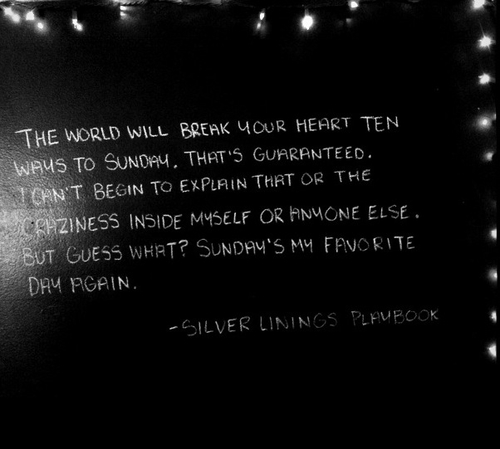 THE WORLD WILL BREAK YOUR HEART TEN
WAYS TO SUNDAY. THAT'S GUARANTEED.
I CAN'T BEGIN TO EXPLAIN THAT OR THE
CRAZINESS INSIDE MYSELF OR ANYONE ELSE.
BUT GUESS WHAT? SUNDAY'S MY FAVORITE
DAY AGAIN.
-SILVER LININGS PLAYBOOK